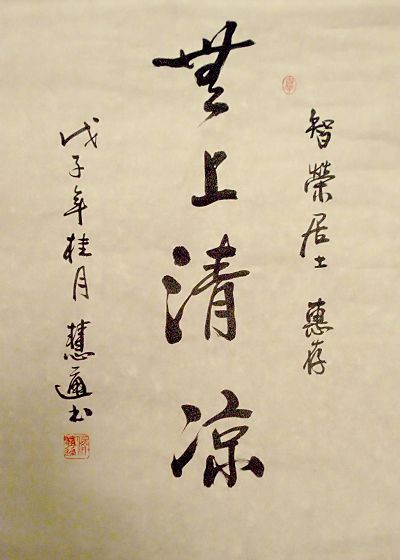 智榮居士 惠存
無上清凉
戊子年桂月 慧通书